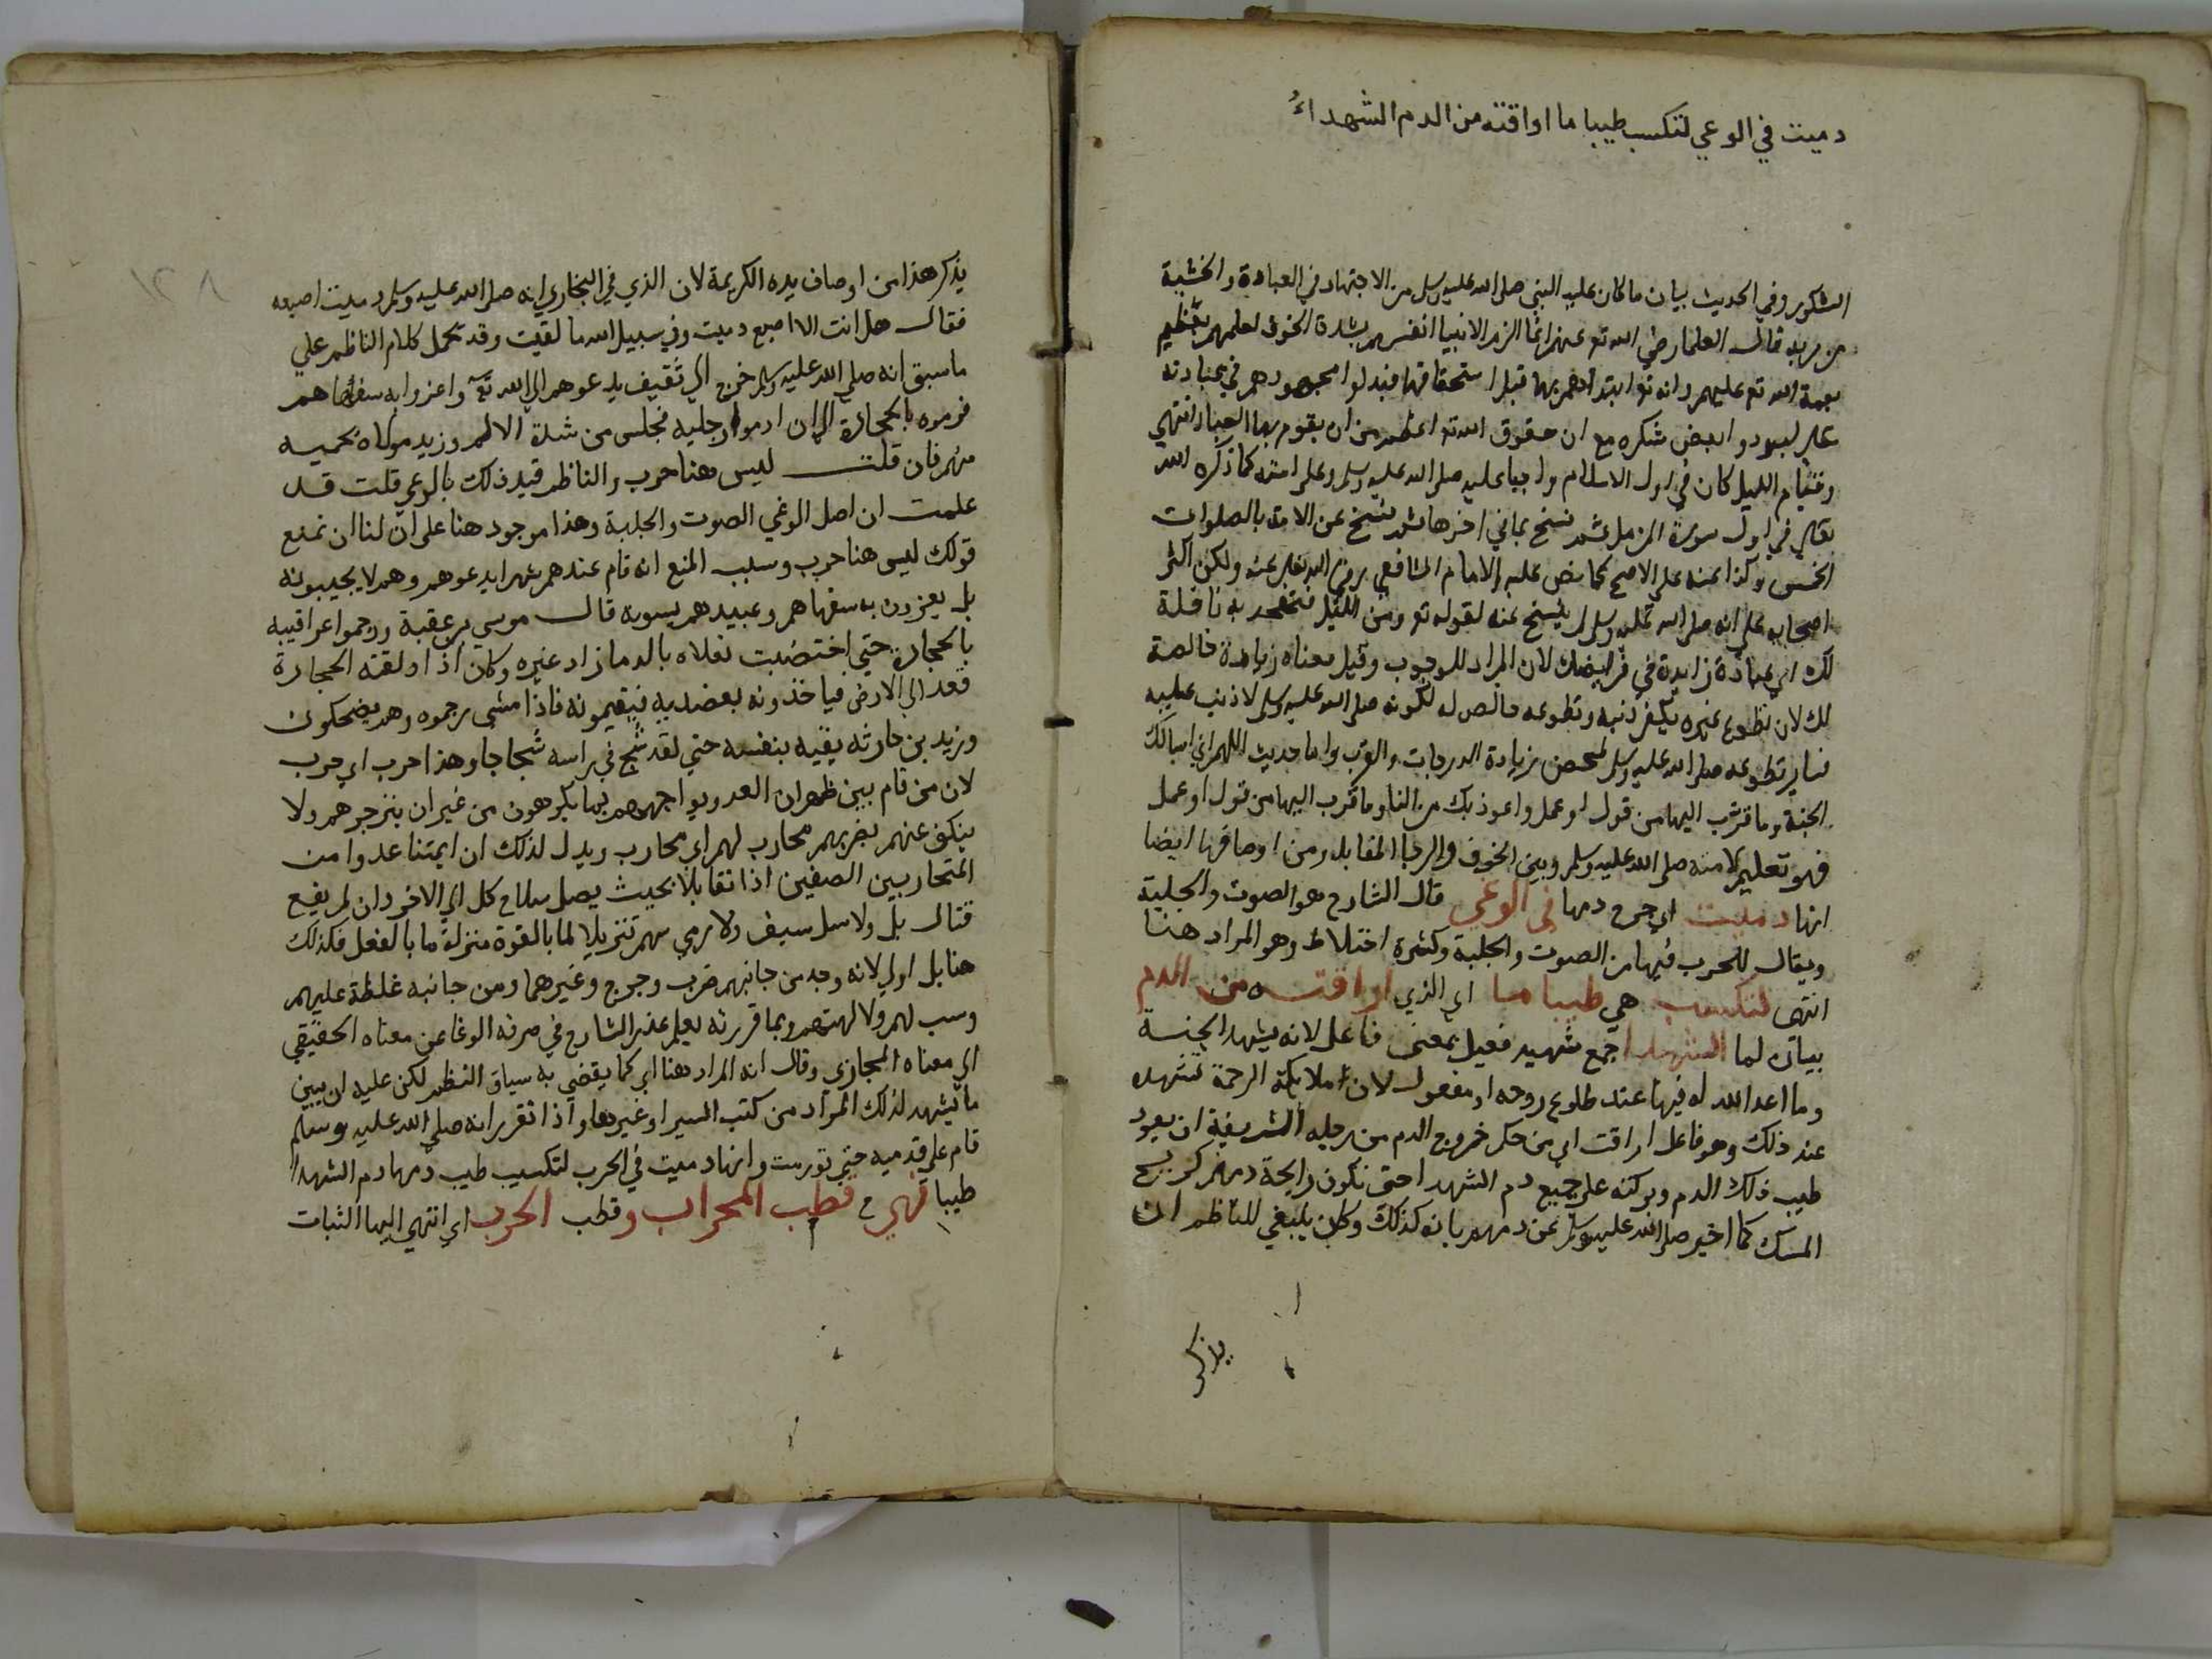 دميت في الوعي لتكسب طيبا ما اراقته من الدم الشهداءُ
الشكور وفي الحديث بيان ما كان عليه النبي صلى الله عليه وسلم من الاجتهاد في العبادة والخشية
من ربه قال العلما رضي الله تع عنهم انما الزم الانبيا انفسهم بشدة الخوف لعلمهم بعظيم
نعمة الله تع عليهم وانه تع ابتداهم بها قبل استحقاقها فبذلوا مجهودهم في عبادته
شكره مع ان حقوق الله تع اعظم من ان يقوم بها العباد انتهي
وقيام الليل كان في اول الاسلام واجبا عليه صلى الله عليه وسلم وعلى امته كما ذكره الله
تعالي في اول سورة المزمل ثم نسخ بما في اخرها ثم نسخ عن الامة بالصلوات
الخمس وكذا عنه على الاصح كما نص عليه الامام الشافعي رضي الله تعالى عنه ولكن اكثر
اصحابه على انه صلى الله عليه وسلم لم ينسخ عنه لقوله تع ومن الليل فتهجد به نافلة
لك اي عبادة زايدة في فرايضك لان المراد للوجوب وقيل معناه زيادة خالصة
لك لان تطوع غيره يكفر ذنبه وتطوعه خالص له لكونه صلى الله عليه وسلم لا ذنب عليه
فساير تطوعه صلى الله عليه وسلم لمحض زيادة الدرجات والقرب واما حديث اللهم اني اسالك
الجنة وما قرب اليها من قول او عمل واعوذ بك من النار وما قرب اليها من قول او عمل
فهو تعليم لامته صلى الله عليه وسلم وبين الخوف والرجا المقابلة ومن اوصافها ايضا
انها دميت اي جرح دمها في الوعي قال الشارح هو الصوت والجلبة
ويقال للحرب فيها من الصوت والجلبة وكثرة اختلاط وهو المراد هنا
انتهى لتكسب هي طيبا ما اي الذي اراقته من الدم
بيان لما الشهدا جمع شهيد فعيل بمعنى فاعل لانه يشهد الجنة
وما اعد الله له فيها عند طلوع روحه او مفعول لان ملايكة الرحمة تشهده
عند ذلك وهو فاعل اراقت اي من حكم خروج الدم من رجليه الشريفة ان يعود
طيب ذلك الدم وبركته على جميع دم الشهدا حتى تكون رايحة دمهم كريح
المسك كما اخبر صلى الله عليه وسلم عن دمهم بانه كذلك وكان ينبغي للناظم ان
يذكر
١٢٨
يذكر هذا من اوصاف يده الكريمة لان الذي في البخاري انه صلى الله عليه وسلم دميت اصبعه
فقال هل انت الا اصبع دميت وفي سبيل الله ما لقيت وقد يحمل كلام الناظم علي
ما سبق انه صلى الله عليه وسلم خرج الي ثقيف يدعوهم الي الله تع واغروا به سفهاهم
فرموه بالحجارة الي ان ادموا رجليه فجلس من شدة الالم وزيد مولاه يحميه
منهم فان قلت ليس هنا حرب والناظم قيد ذلك بالوعي قلت قد
علمت ان اصل الوغي الصوت والجلبة وهذا موجود هنا على ان لنا ان نمنع
قولك ليس هنا حرب وسبب المنع انه قام عندهم شهرا يدعوهم وهم لا يجيبونه
بل يغرون به سفهاهم وعبيدهم يسبونه قال موسي بن عقبة ورجموا عراقيبه
بالحجارة حتي اختضبت نعلاه بالدما زاد غيره وكان اذا اذلقته الحجارة
قعد الي الارض فياخذونه بعضديه فيقيمونه فاذا مشى رجموه وهم يضحكون
وزيد بن حارثة يقيه بنفسه حتي لقد شج في راسه شجاجا وهذا حرب اي حرب
لان من قام بين ظهران العدو يواجههم بما يكرهون من غير ان ينزجر هم ولا
ينكف عنهم بضربهم محارب لهم اي محارب ويدل لذلك ان ايمتنا عدوا من
المتحاربين الصفين اذا تقابلا بحيث يصل سلاح كل الي الاخر وان لم يقع
قتال بل ولا سل سيف ولا رمي سهم تنزيلا لما بالقوة منزلة ما بالفعل فكذلك
هنا بل اولي لانه وجد من جانبهم ضرب وجرح وغيرهما ومن جانبه غلظة عليهم
وسب لهم ولالهتهم وبما قررته يعلم عذر الشارح في صرفه الوغا عن معناه الحقيقي
الي معناه المجازي وقال انه المراد هنا اي كما يقضي به سياق النظم لكن عليه ان يبين
ما يشهد لذلك المراد من كتب السير او غيرها واذا تقرر انه صلى الله عليه وسلم
قام علي قدميه حتي تورمت وانها دميت في الحرب لتكسب طيب دمها دم الشهدا
طيبا فهي قطب المحراب وقطب الحرب اي انتهي اليها الثبات